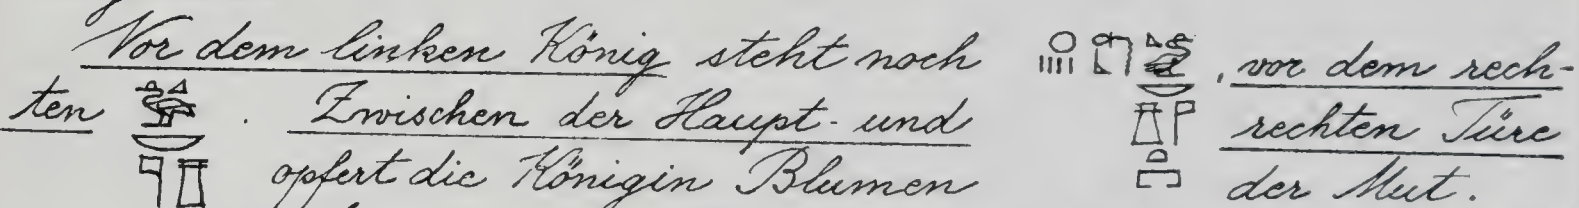 Vor dem linken König steht noch , vor dem rech-
ten . Zwischen der Haupt- und rechten Türe
opfert die Königin Blumen der Mut.